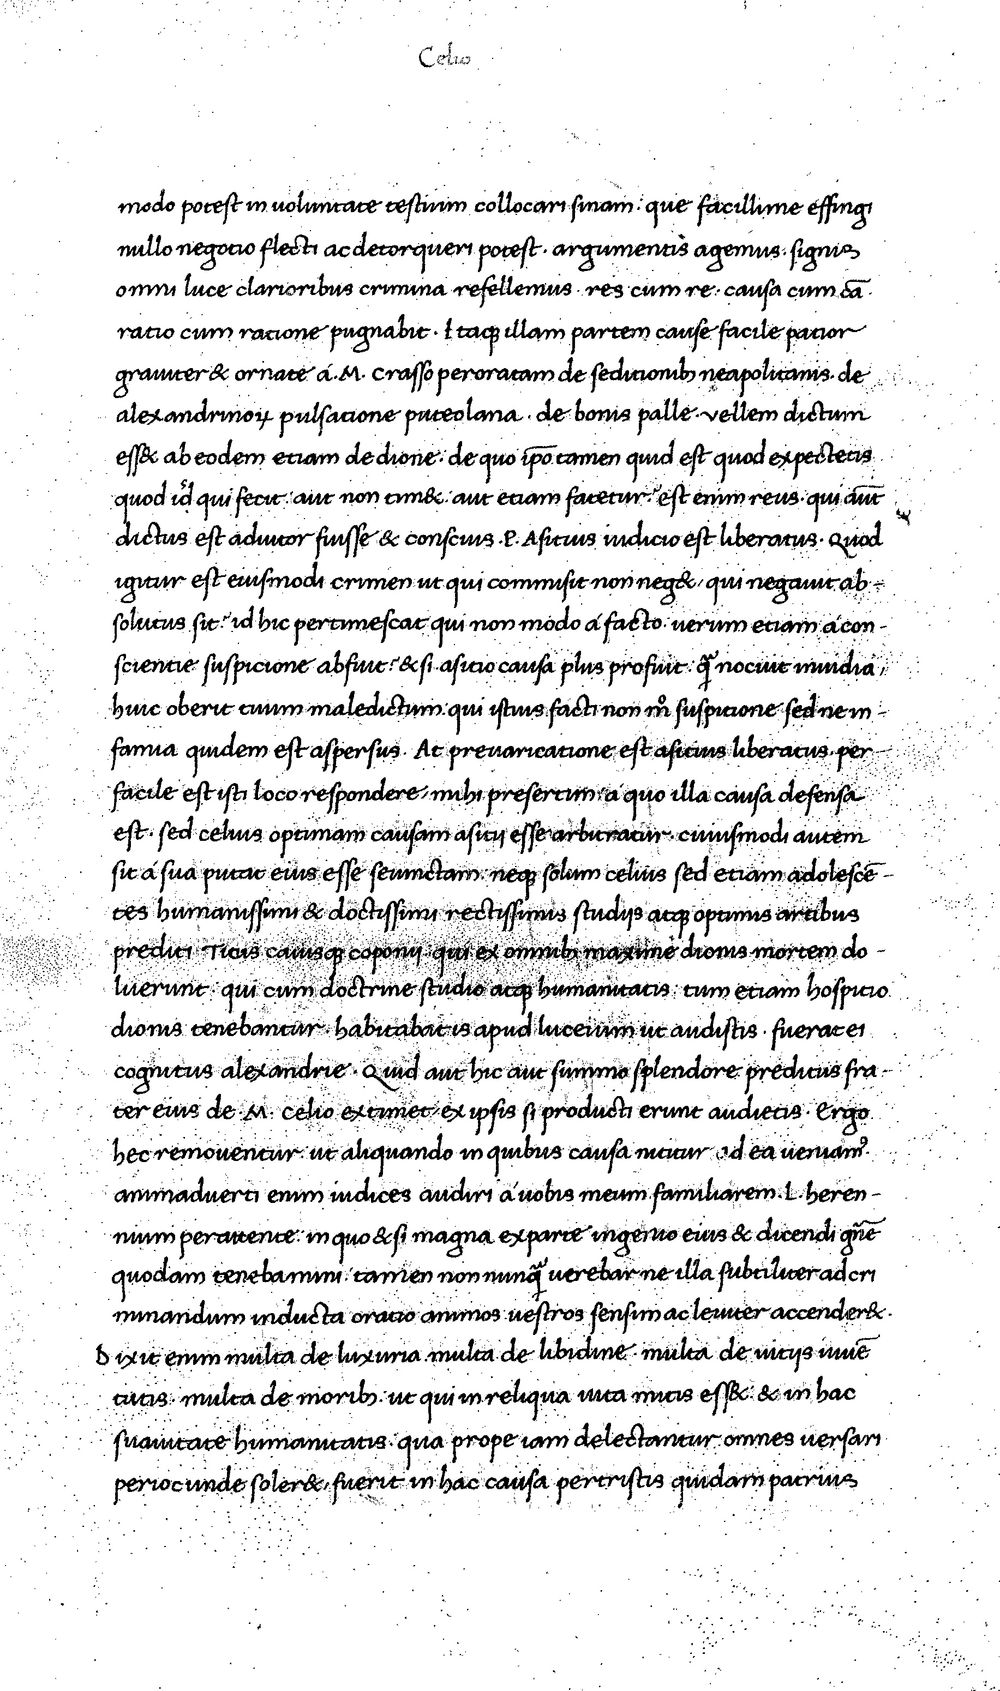 Celio
modo potest in uoluntate testium collocari sinam. que facillime effingi
nullo negotio flecti ac detorqueri potest. argumentis agemus. signis
omni luce clarioribus crimina refellemus. res cum re. causa cum cā.
ratio cum ratione pugnabit. Itaqꝫ illam partem cause facile patior
grauiter & ornate á. M. Crasso peroratam de seditionibꝫ neapolitanis. de
alexandrinoꝝ pulsatione puteolana. de bonis palle. vellem dictum
ess& ab eodem etiam de dione. de quo ip̄o tamen quid est quod expectetis
quod id qui fecit. aut non tim&. aut etiam fatetur. est enim reus. qui aūt
dictus est adiutor fuisse & conscius. P. Asitius iudicio est liberatus. Quod
igitur est eiusmodi crimen ut qui commisit non neg&, qui negauit ab-
solutus sit. id hic pertimescat qui non modo á facto. uerum etiam á con-
scientie suspicione abfuit. & si asitio causa plus profuit. qꝫ̄ nocuit inuidia,
huic oberit tuum maledictum. qui istius facti non m̊ suspicione sed ne in-
famia quidem est aspersus. At preuaricatione est asitius liberatus. per-
facile est isti loco respondere, mihi presertim. a quo illa causa defensa
est. sed celius optimam causam asitij esse arbitratur. cuiusmodi autem
sit á sua putat eius esse seiunctam. neqꝫ solum celius sed etiam adolescē-
tes humanissimi & doctissimi rectissimis studijs atqꝫ optimis artibus
prediti Titus caiusqꝫ coponij qui ex omnibꝫ maxime dionis mortem do-
luerunt. qui cum doctrine studio atqꝫ humanitatis. tum etiam hospitio
dionis tenebantur. habitabat is apud luceium ut audistis. fuerat ei
cognitus alexandrie. Quid aut hic aut summo splendore preditus fra-
ter eius de M. celio extimet ex ipsis si producti erunt audietis. Ergo
hec remouentur. ut aliquando in quibus causa nititur ad ea ueniamꝰ.
animaduerti enim iudices audiri a uobis meum familiarem. L. heren-
nium perattente. in quo & si magna ex parte ingenio eius & dicendi gn̄e
quodam tenebamini. tamen non nunqꝫ̄ uerebar ne illa subtiliter ad cri
minandum inducta oratio animos uestros sensim ac leuiter accender&.
Dixit enim multa de luxuria multa de libidine. multa de uitijs iuuē
tutis. multa de moribꝫ. ut qui in reliqua uita mitis ess&. & in hac
suauitate humanitatis. qua prope iam delectantur omnes uersari
periocunde soler&, fuerit in hac causa pertristis quidam patrius